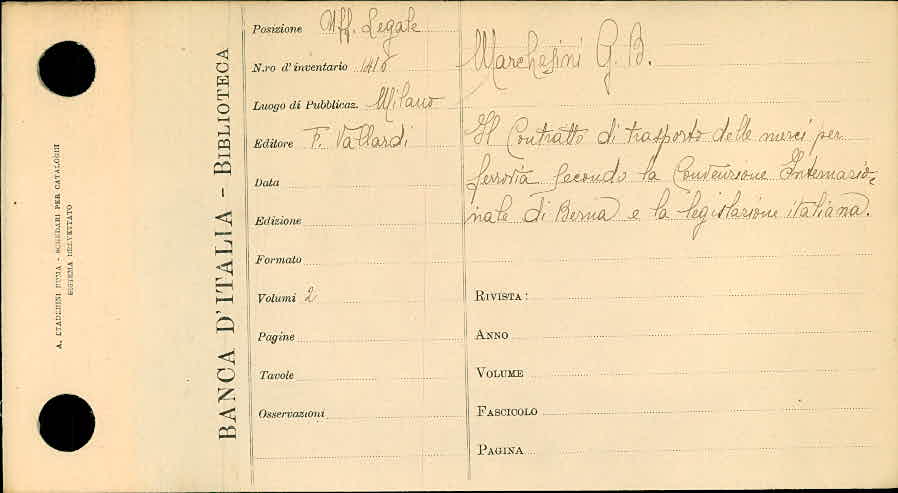 A. STADERINI ROMA - SCHEDARI PER CATALOGHI
SISTEMA BREVETTATO
BANCA D'ITALIA - BIBLIOTECA
Posizione Uff. Legale
N.ro d'inventario
Luogo di Pubblicaz. Milano
Editore F. Vallardi
Data
Edizione
Formato
Volumi 2
Pagine
Tavole
Osservazioni
Marchesini G. B.
Il Contratto di trasporto delle merci per
ferrovia secondo la Convenzione Internazio-
nale di Berna e la legislazione italiana.
RIVISTA:
ANNO
VOLUME
FASCICOLO
PAGINA